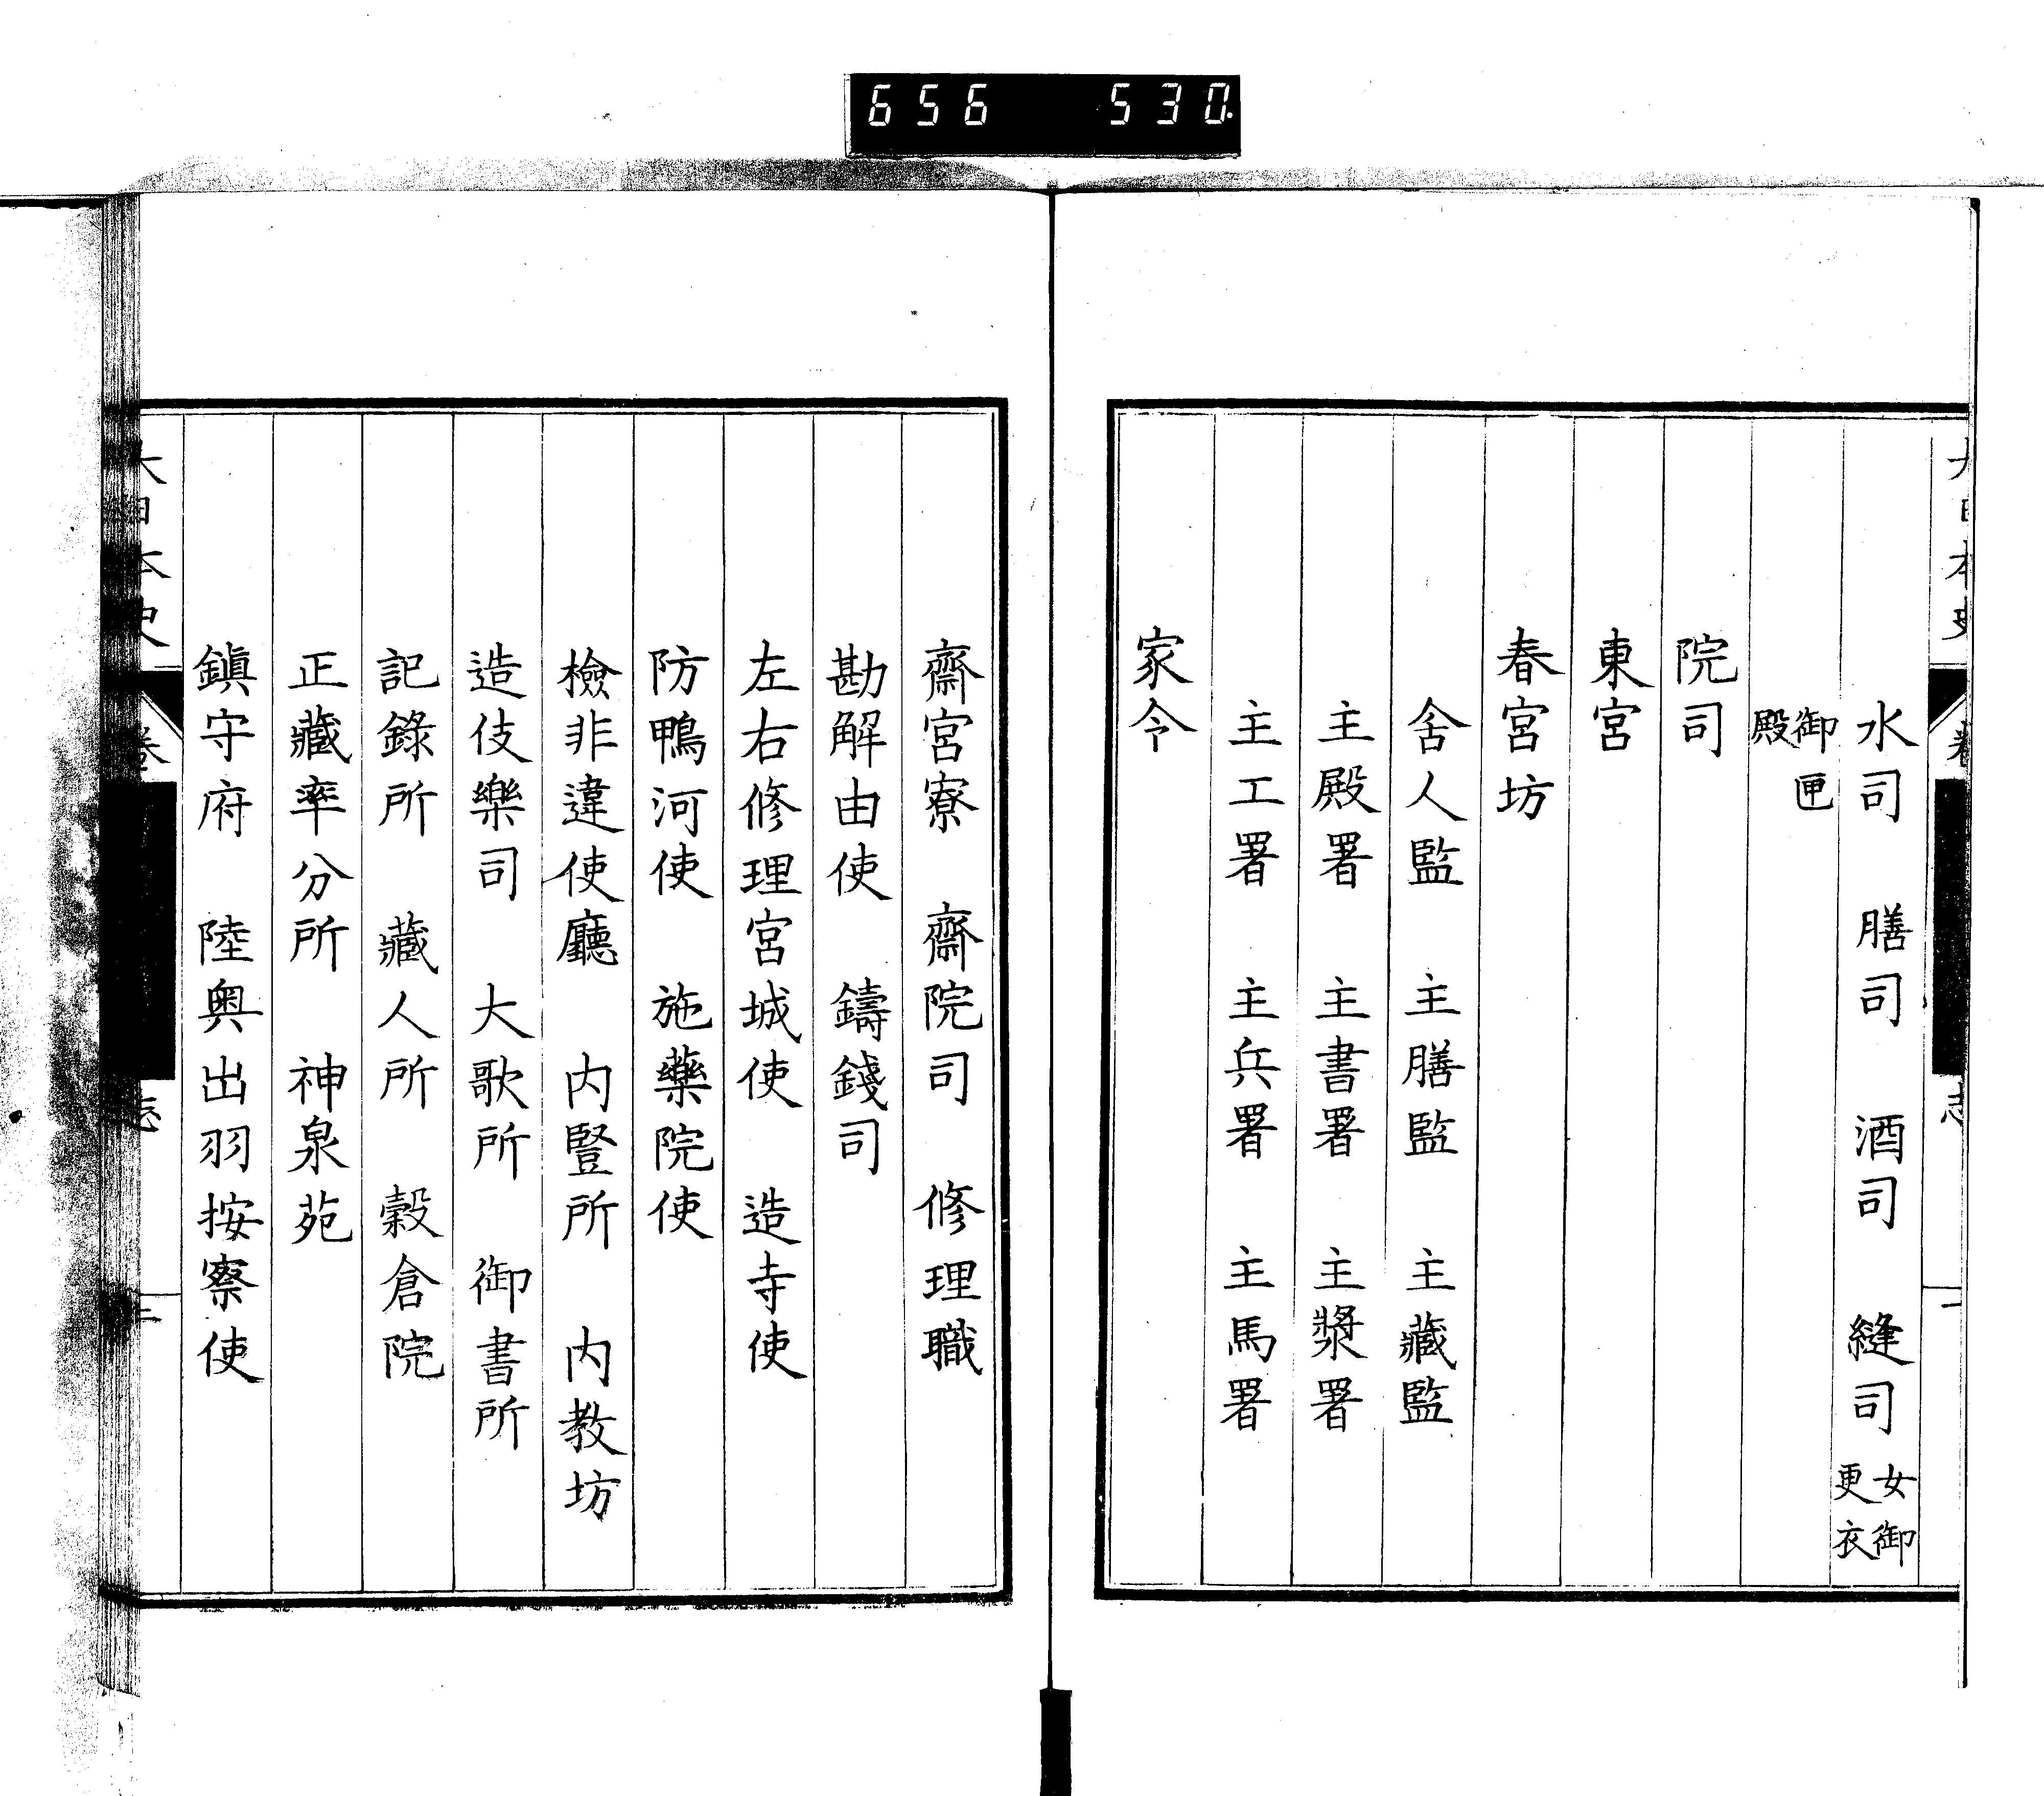 656 530.
大日本史 卷 志
水司 膳司 酒司 縫司 女御更衣
御匣殿
院司
東宮
春宮坊
舍人監 主膳監 主藏監
主殿署 主書署 主漿署
主工署 主兵署 主馬署
家令
齋宮寮 齋院司 修理職
勘解由使 鑄錢司
左右修理宮城使 造寺使
防鴨河使 施藥院使
檢非違使廳 內豎所 內教坊
造伎樂司 大歌所 御書所
記錄所 藏人所 穀倉院
正藏率分所 神泉苑
鎭守府 陸奥出羽按察使
大日本史 卷 志